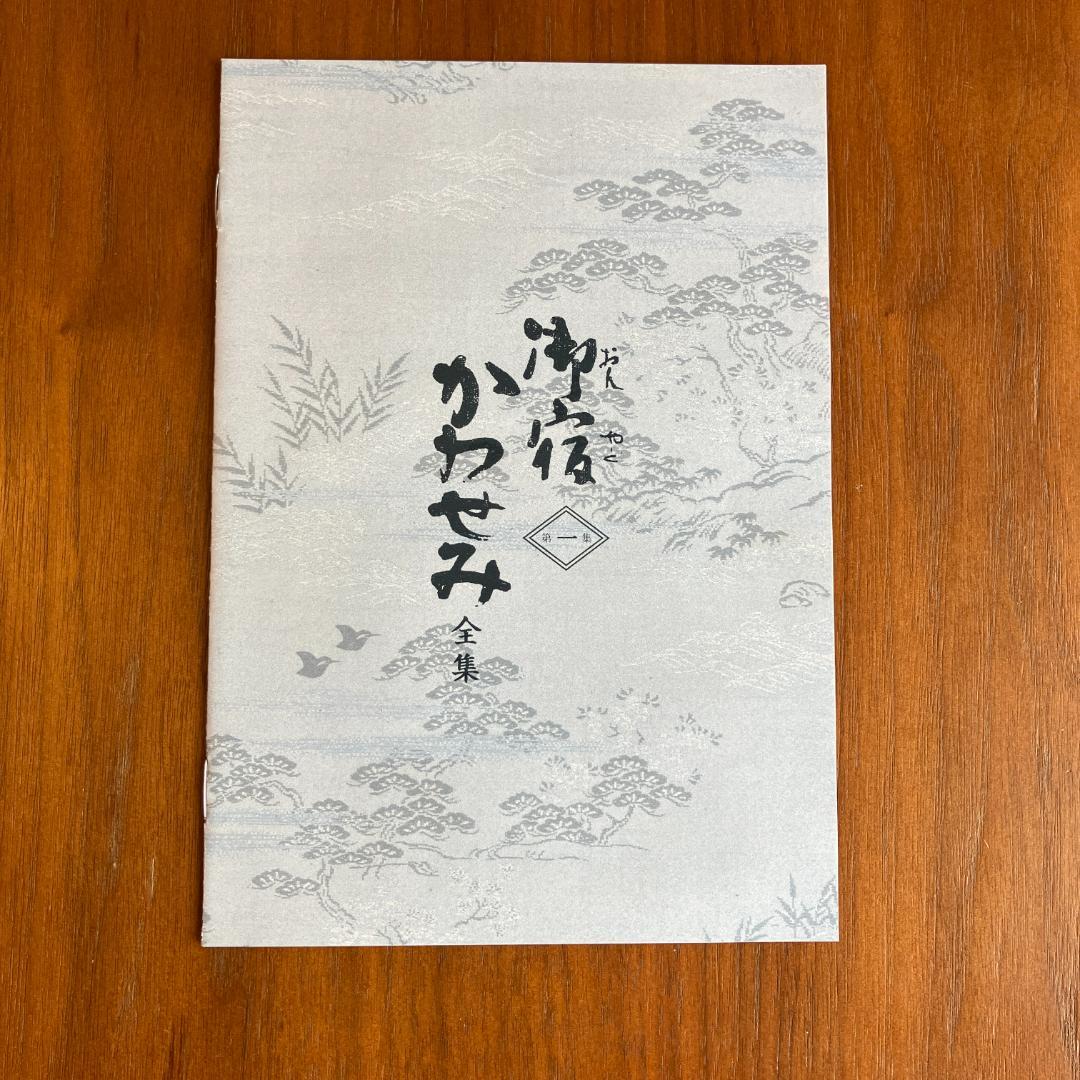 御宿
おん
やど
第一集
かわせみ
全集